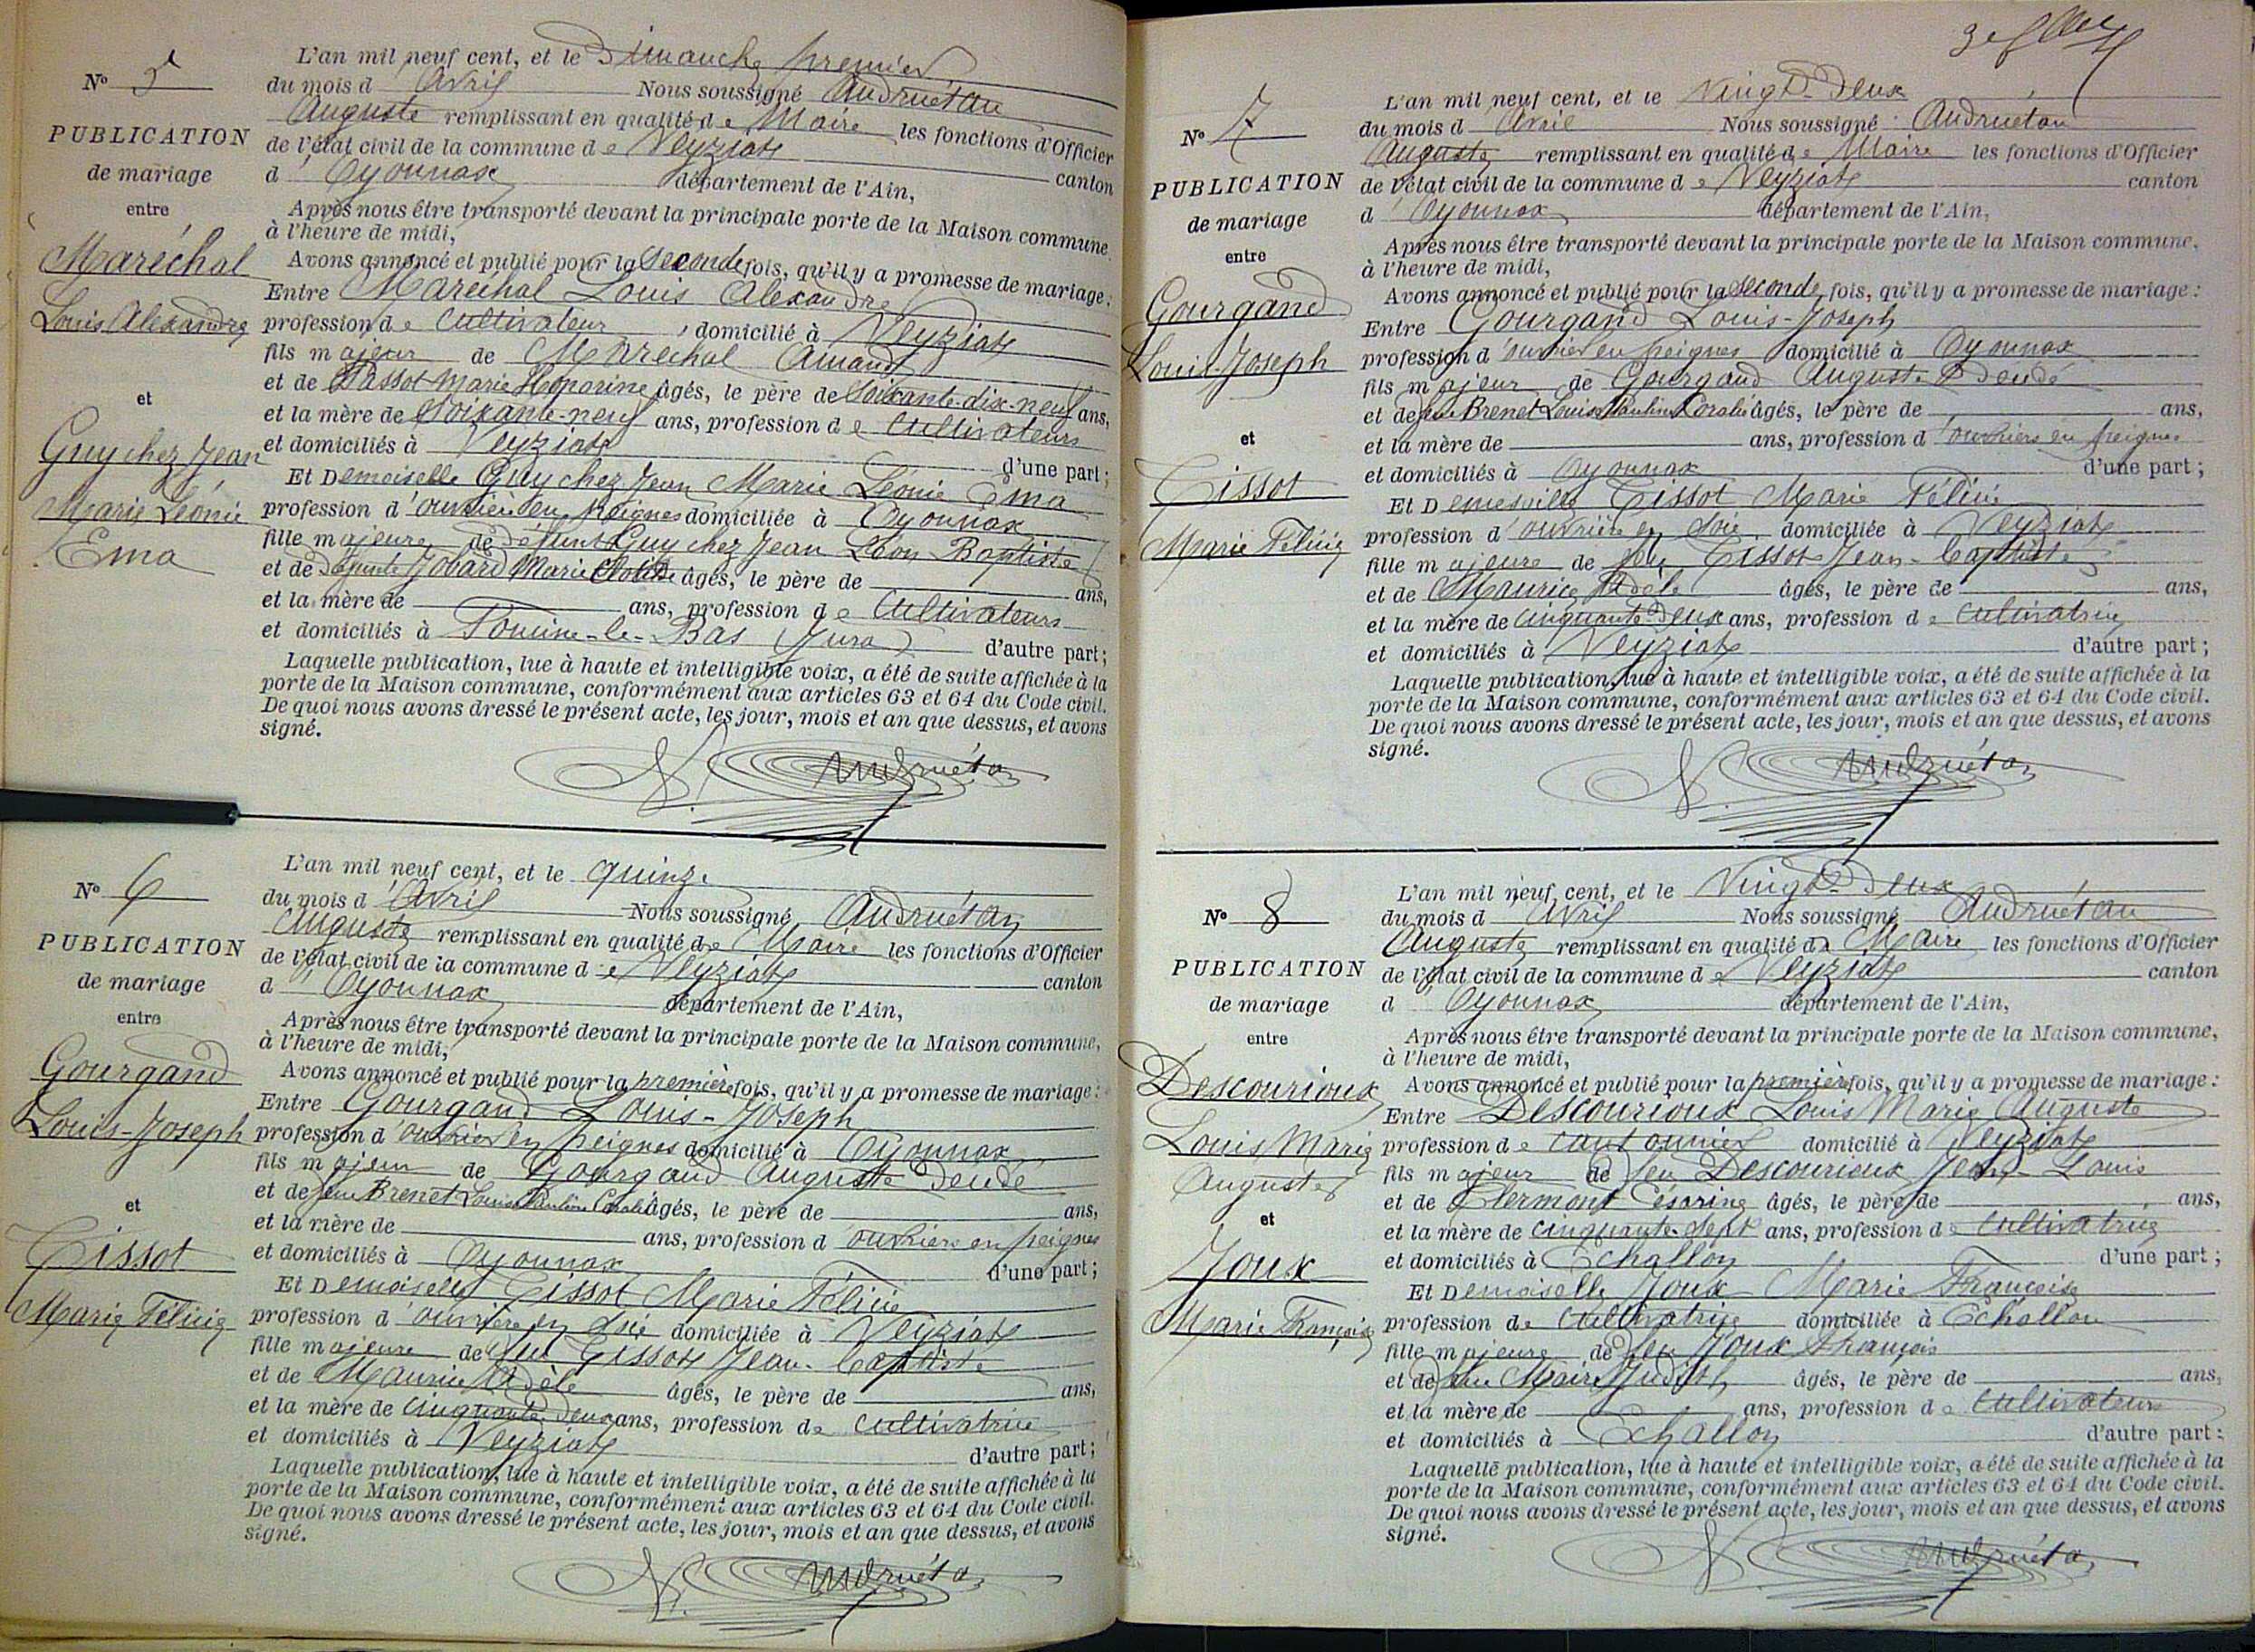 N° 5
PUBLICATION
de mariage
entre
Maréchal
Louis Alexandre
et
Guy chez Jean
Marie Léonie
Ema
L'an mil neuf cent, et le Dimanche premier
du mois d Avril Nous soussigné Audruétan
Auguste remplissant en qualité de Maire les fonctions d'Officier
de l'état civil de la commune de Veyziat canton
d'Oyonnax département de l'Ain,
Après nous être transporté devant la principale porte de la Maison commune.
à l'heure de midi,
Avons annoncé et publié pour la seconde fois, qu'il y a promesse de mariage:
Entre Maréchal Louis Alexandre
profession de cultivateur, domicilié à Veyziat
fils majeur de Maréchal Amand
et de Passot Marie Honorine âgés, le père de soixante-dix-neuf ans,
et la mère de soixante-neuf ans, profession de cultivateurs
et domiciliés à Veyziat d'une part;
Et Demoiselle Guy chez Jean Marie Léonie Ema
profession d'ouvrière en peignes domiciliée à Oyonnax
fille majeure de défunt Guy chez Jean Léon Baptiste
et de défunte Jobard Marie Clotilde âgés, le père de ans,
et la mère de ans, profession de cultivateurs
et domiciliés à le-Bas (Jura) d'autre part;
Laquelle publication, lue à haute et intelligible voix, a été de suite affichée à la
porte de la Maison commune, conformément aux articles 63 et 64 du Code civil.
De quoi nous avons dressé le présent acte, les jour, mois et an que dessus, et avons
signé.
Audruétan
N° 6
PUBLICATION
de mariage
entre
Gourgand
Louis-Joseph
et
Tissot
Marie Félicie
L'an mil neuf cent, et le quinze
du mois d'Avril Nous soussigné Audruétan
Auguste remplissant en qualité de Maire les fonctions d'Officier
de l'état civil de la commune de Veyziat canton
d'Oyonnax département de l'Ain,
Après nous être transporté devant la principale porte de la Maison commune,
à l'heure de midi,
Avons annoncé et publié pour la première fois, qu'il y a promesse de mariage:
Entre Gourgand Louis-Joseph
profession d'ouvrier en peignes domicilié à Oyonnax
fils majeur de Gourgand Auguste Dendé
et de feue Brenet Louise Pauline Coralie âgés, le père de ans,
et la mère de ans, profession d'ouvriers en peignes
et domiciliés à Oyonnax d'une part;
Et Demoiselle Tissot Marie Félicie
profession d'ouvrière en soie domiciliée à Veyziat
fille majeure de feu Tissot Jean-baptiste
et de Maurice Adèle âgés, le père de ans,
et la mère de cinquante-deux ans, profession de cultivatrice
et domiciliés à Veyziat d'autre part;
Laquelle publication, lue à haute et intelligible voix, a été de suite affichée à la
porte de la Maison commune, conformément aux articles 63 et 64 du Code civil.
De quoi nous avons dressé le présent acte, les jour, mois et an que dessus, et avons
signé.
Audruétan
N° 7
PUBLICATION
de mariage
entre
Gourgand
Louis-Joseph
et
Tissot
Marie Félicie
L'an mil neuf cent, et le Vingt-Deux
du mois d'Avril Nous soussigné Audruétan
Auguste remplissant en qualité de Maire les fonctions d'Officier
de l'état civil de la commune de Veyziat canton
d'Oyonnax département de l'Ain,
Après nous être transporté devant la principale porte de la Maison commune,
à l'heure de midi,
Avons annoncé et publié pour la seconde fois, qu'il y a promesse de mariage:
Entre Gourgand Louis-Joseph
profession d'ouvrier en peignes domicilié à Oyonnax
fils majeur de Gourgand Auguste Dendé
et de feue Brenet Louise Pauline Coralie âgés, le père de ans,
et la mère de ans, profession d'ouvriers en peignes
et domiciliés à Oyonnax d'une part;
Et Demoiselle Tissot Marie Félicie
profession d'ouvrière en soie domiciliée à Veyziat
fille majeure de feu Tissot Jean-baptiste
et de Maurice Adèle âgés, le père de ans,
et la mère de cinquante-deux ans, profession de cultivatrice
et domiciliés à Veyziat d'autre part;
Laquelle publication, lue à haute et intelligible voix, a été de suite affichée à la
porte de la Maison commune, conformément aux articles 63 et 64 du Code civil.
De quoi nous avons dressé le présent acte, les jour, mois et an que dessus, et avons
signé.
Audruétan
N° 8
PUBLICATION
de mariage
entre
Descourioux
Louis Marie
Auguste
et
Joux
Marie Françoise
L'an mil neuf cent, et le Vingt-Deux
du mois d Avril Nous soussigné Audruétan
Auguste remplissant en qualité de Maire les fonctions d'Officier
de l'état civil de la commune de Veyziat canton
d'Oyonnax département de l'Ain,
Après nous être transporté devant la principale porte de la Maison commune,
à l'heure de midi,
Avons annoncé et publié pour la première fois, qu'il y a promesse de mariage:
Entre Descourioux Louis Marie Auguste
profession de cantonnier domicilié à Veyziat
fils majeur de feu Descourioux Jean-Louis
et de Clermont Césarine âgés, le père de ans,
et la mère de cinquante-sept ans, profession de cultivatrice
et domiciliés à Echallon d'une part;
Et Demoiselle Joux Marie Françoise
profession de cultivatrice domiciliée à Echallon
fille majeure de feu Joux François
et de feue Maire Judith âgés, le père de ans,
et la mère de ans, profession de cultivateurs
et domiciliés à Echallon d'autre part:
Laquelle publication, lue à haute et intelligible voix, a été de suite affichée à la
porte de la Maison commune, conformément aux articles 63 et 64 du Code civil.
De quoi nous avons dressé le présent acte, les jour, mois et an que dessus, et avons
signé.
Audruétan